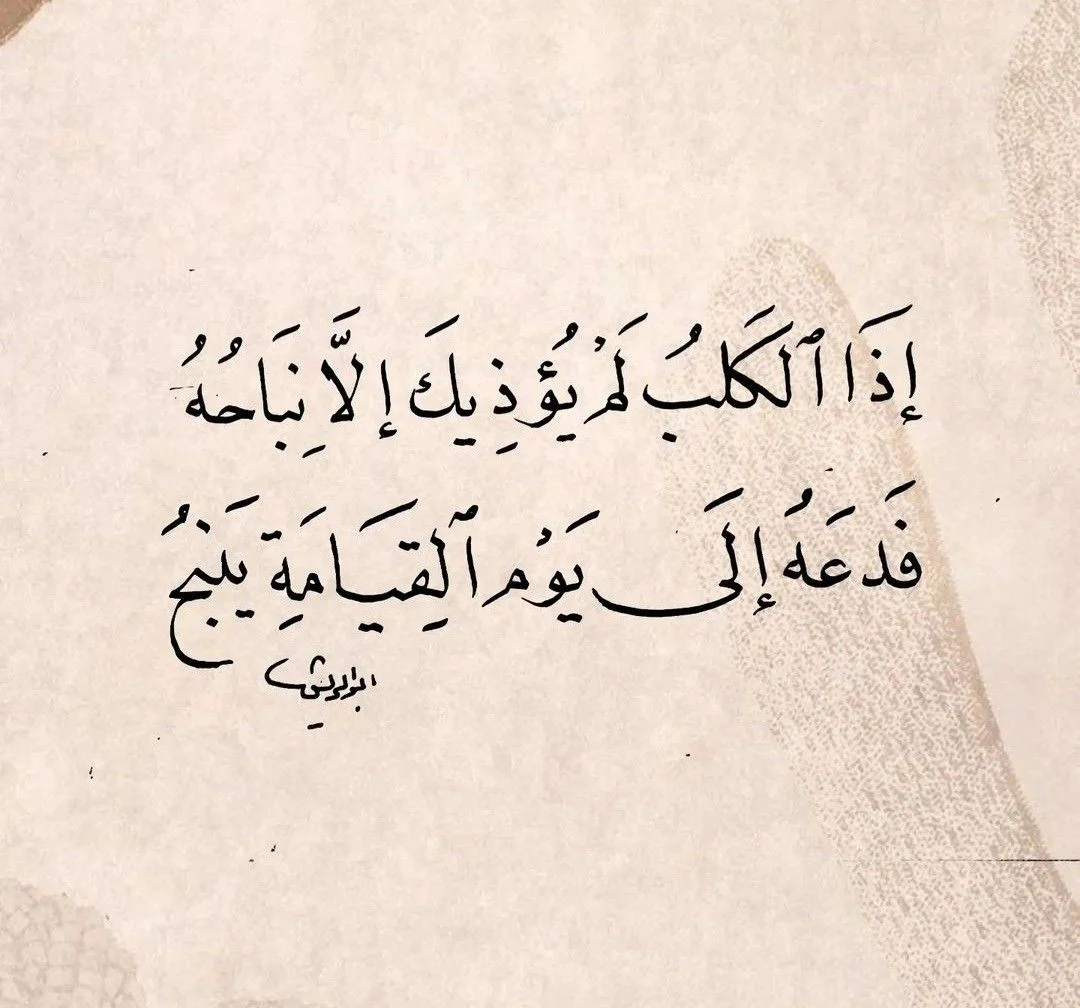 إِذَا ٱلْكَلبُ لَمْ يُؤذِيكَ إلَّا نِبَاحُهُ
فَدَعَهُ إلَى يَوْمِ ٱلقِيَامَةِ يَنبَحُ